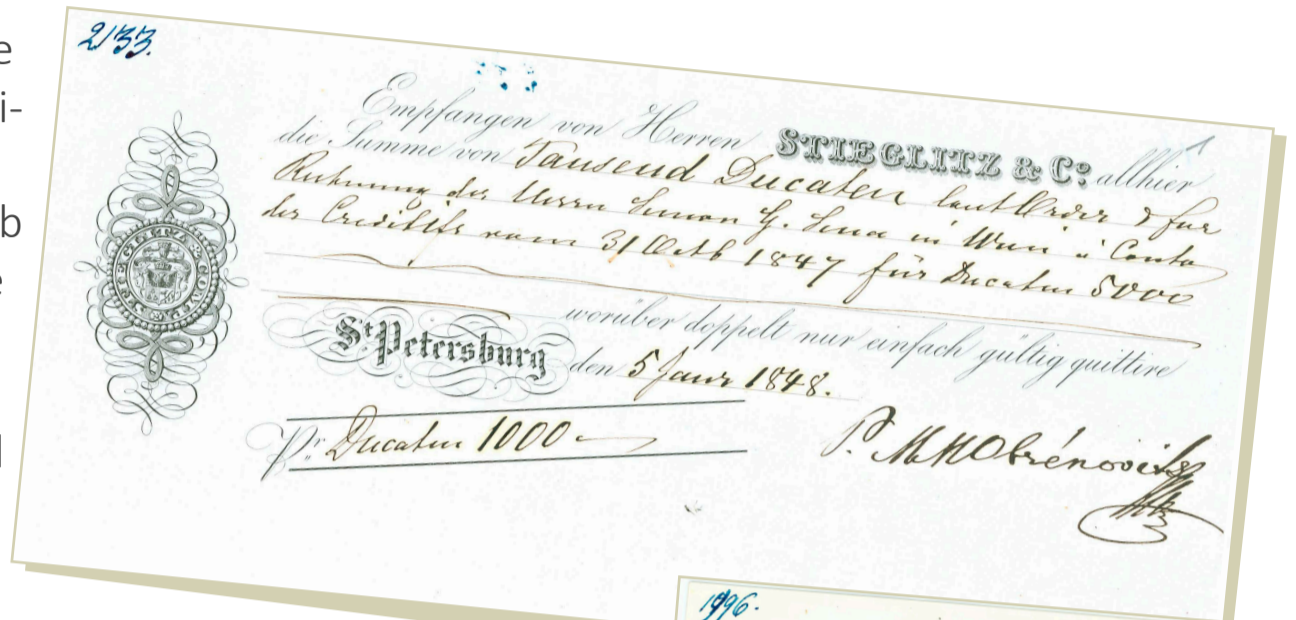 e
i-
b
e
d
2133.
Empfangen von Herren STIEGLITZ & Co. allhier
die Summe von Tausend Ducaten laut Order & für
Rechnung des Herrn Simon G. Sina in Wien à Conto
des Creditifs vom 31 Octb 1847 für Ducaten 5000
worüber doppelt nur einfach gültig quittire
St. Petersburg den 5 Janr 1848.
Pr. Ducaten 1000
P. M M Obrénovits
STIEGLITZ & COMP.
1996.